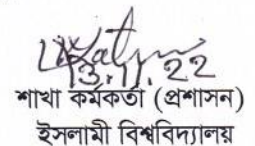 13.11.22
শাখা কর্মকর্তা (প্রশাসন)
ইসলামী বিশ্ববিদ্যালয়